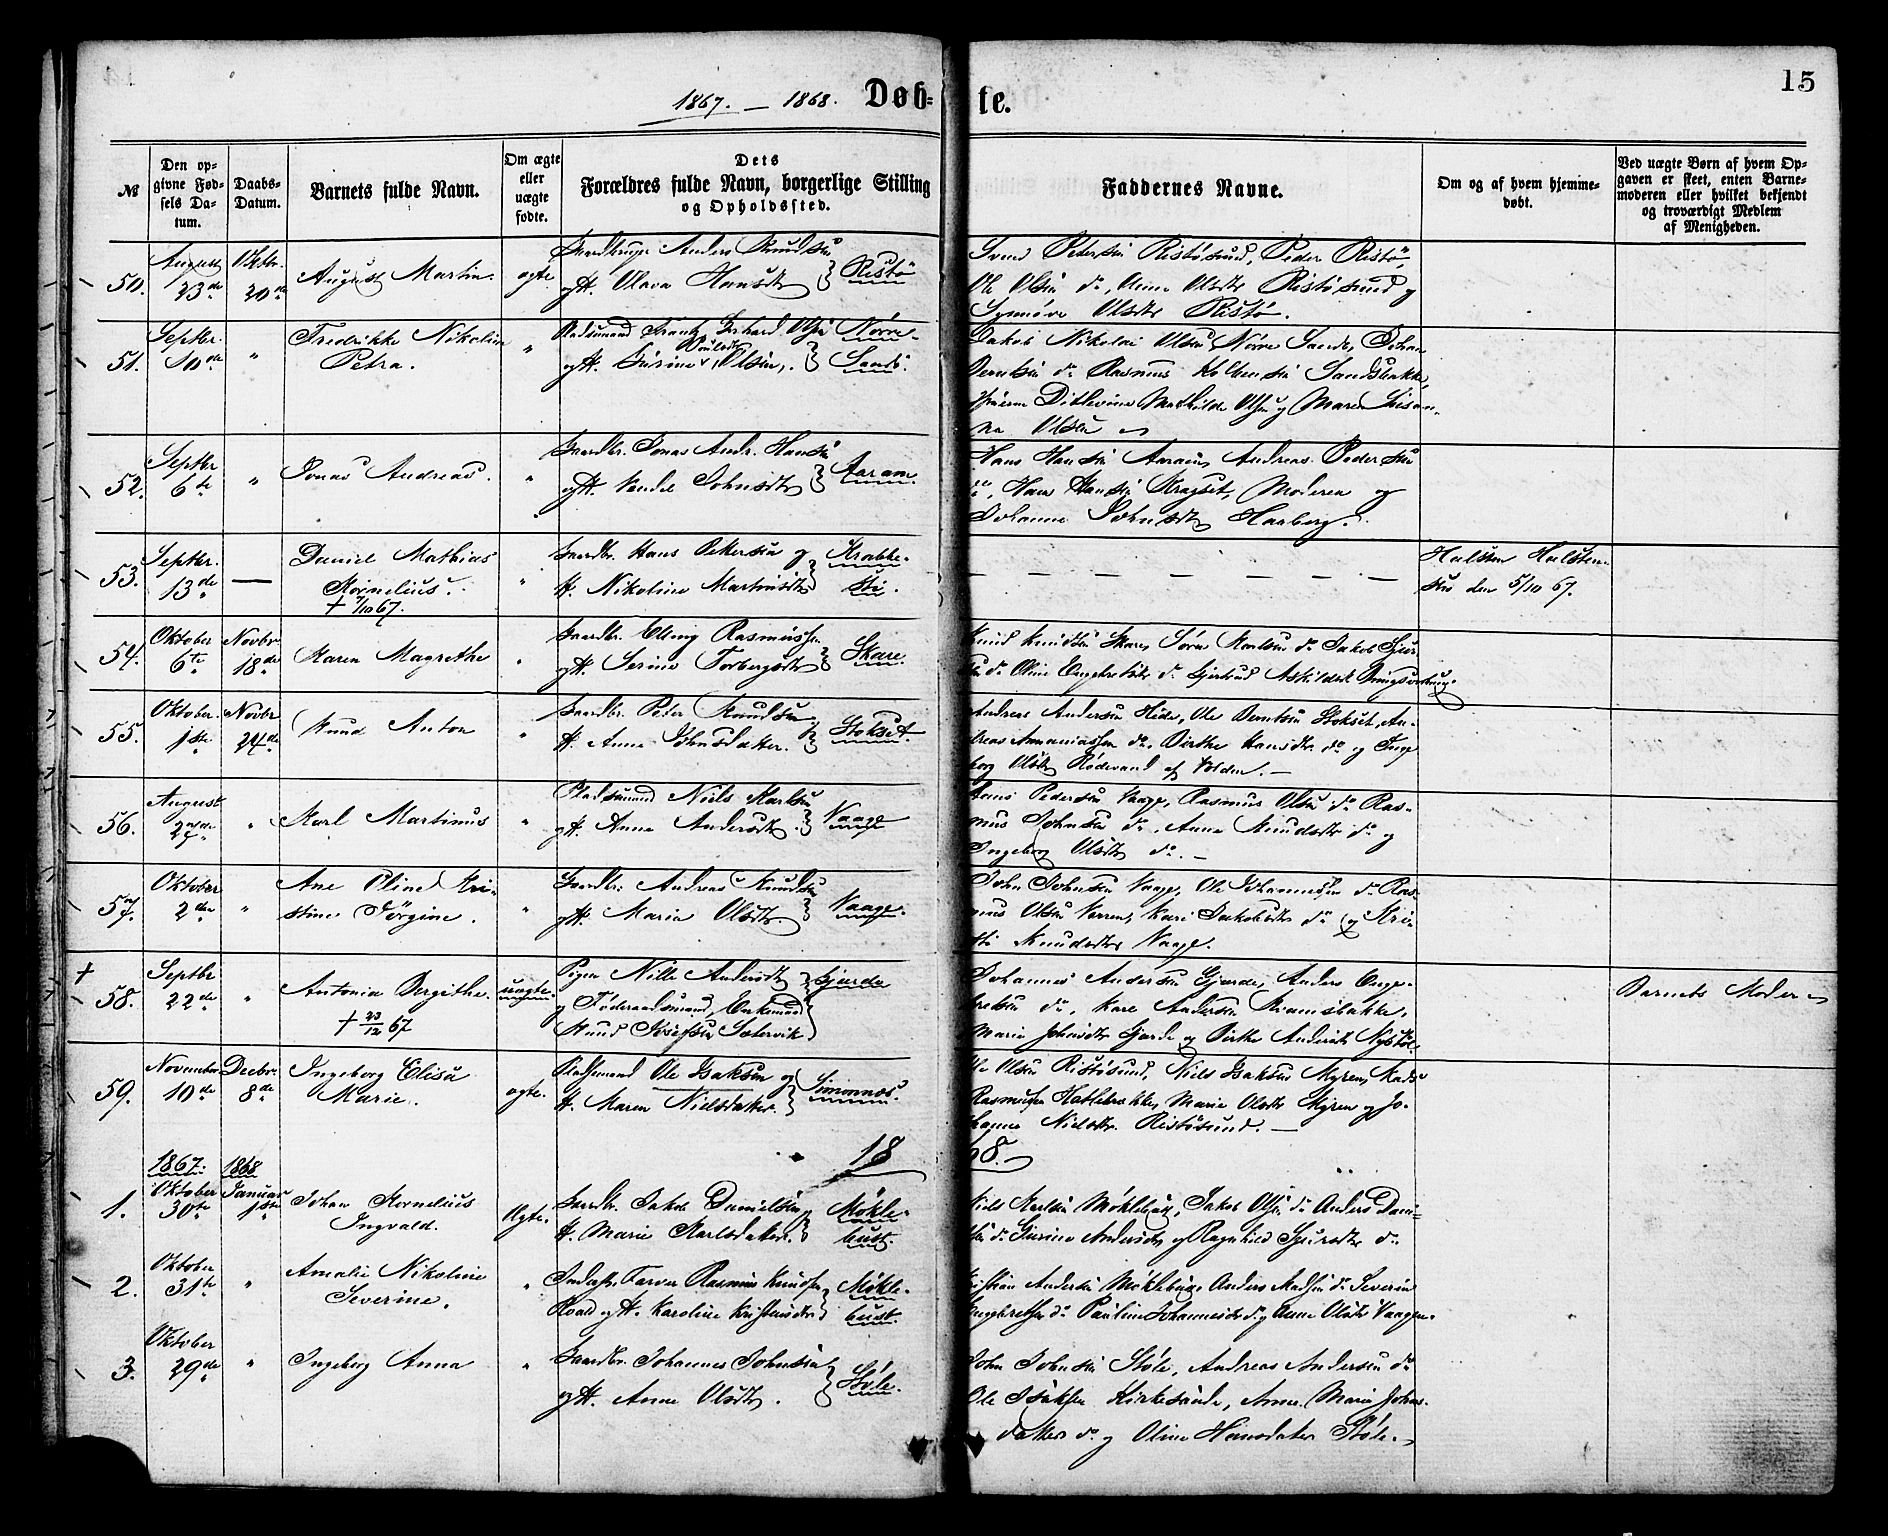 15
1867. — 1868. Døb= te.
№
Den op-
givne Fød-
sels Da-
tum.
Daabs-
Datum.
Barnets fulde Navn.
Om ægte
eller
uægte
fødte.
Dets
Forældres fulde Navn, borgerlige Stilling
og Opholdssted.
Faddernes Navne.
Om og af hvem hjemme-
døbt.
Ved uægte Børn af hvem Op-
gaven er skeet, enten Barne-
moderen eller hvilket bekjendt
og troværdigt Medlem
af Menigheden.
50. August 23de Oktbr. 20de August Martin. ægte Anders Knudsen
og H. Olava Hansdtr Ristø
Svend Petersen Ristøsund, Peder Ristø,
Ole Olsen do, Anne Olsdtr Ristøsund og
Synnøve Olsdtr Ristø.
51. Septbr. 10de " Fredrikke Nikoline
Petra. " Pladsmand Frantz Gerhard Olsen
og H. Gurine Olsen. Nørre-
Sande.
Jakob Nikolai Olsen Nørre Sande, Johan
Berntsen do Rasmus Sandsbakke,
Ditlevine Mathilde Olsen og Maren Susan-
na Olsen
52. Septbr 6te " Jonas Andreas. " Gaardbr. Jonas Andr. Hansen
og H. Vendel Johnsdtr Aaram.
Hans Hansen Aaram, Andreas Pedersen
do, Hans Hansen Kragset, Moderen og
Johanne Johnsdtr Haaberg.
53. Septbr. 13de — Daniel Mathias
Kornelius.
† 7/10 67. " Gaardbr. Hans Petersen og
H. Nikoline Martinsdtr Krabbe-
sti.
— — — — — — — —
Halsten Halsten-
sen den 5/10 67.
54. Oktober 6te Novbr 18de Karen Magrethe " Gaardbr. Elling Rasmussen
og H. Serine Torbergsdtr Skare.
Knud Knudsen Skare, Søren Karlsen do Jakob Sjur-
sen do Oline Engebretsdtr do Gjertrud Askildsdtr
55. Oktober. 1ste Novbr 24de Knud Anton " Gaardbr. Peter Knudsen og
H. Anne Johnsdatter. Stokset.
Andreas Andersen Hide, Ole Berntsen Stokset, An-
dreas Annaniassen do. Birthe Hansdtr do og Inge-
borg Olsdtr Rødevand af Volden. —
56. August 27de " Karl Martinus " Pladsmand Niels Karlsen
og H. Anne Andersdtr Vaage
Pedersen Vaage, Rasmus Olsen do Ras-
mus Johnsen do, Anne Knudsdtr do og
Ingeborg Olsdtr do. —
57. Oktober 2den " Ane Oline Kri-
stine Jørgine. " Gaardbr. Andreas Knudsen
og H. Marie Olsdtr Vaage.
John Johnsen Vaage, Ole Johannessen do Ras-
mus Olsen Varren, Kari Jakobsdtr do og Kri-
sti Knudsdtr Vaage.
† 58. Septbr 22de " Antonia Bergithe.
† 23/12 67 uægte. Pigen Nille Andersdtr Gjerde
og Føderaadsmand, Enkemand
Knud Josefsen Sætervik
Johannes Andersen Gjerde, Anders Enge-
bretsen do, Kare Andersen Kvamsbakke,
Marie Johnsdtr Gjerde og Birthe Andersdtr Nystøl.
Barnets Moder
59. November 10de Decbr. 8de Ingeborg Elisa
Marie. ægte. Pladsmand Ole Isaksen og
H. Maren Nielsdatter. Simonnes.
Ole Olsen Ristøsund, Niels Isaksen Myren, Mads
Rasmussen Hatlebakke, Marie Olsdtr Myren og Jo-
hanne Nielsdtr. Ristøsund. —
18 68.
1867. 1868
1. Oktober 30te Januar 1ste Johan Kornelius
Ingvald. Ægte. Gaardbr. Jakob Danielsen og
H. Marie Karlsdatter. Møkle-
bust.
Niels Karlsen Møklebust, Jakob Olsen do Anders Dani-
elsen do Gurine Andersdtr og Ragnhild Sjursdtr do
2. Oktober 31te " Amalie Nikoline
Severine. " Farver Rasmus Knudsen
og H. Karoline Kristensdtr Møkle-
bust.
Kristian Andersen Møklebust, Anders Madsen do Severin
Engebretsen do Pauline Johannesdtr do og Anne Olsdtr Vaagen.
3. Oktober 29de " Ingeborg Anna " Gaardbr. Johannes Johnsen
og H. Anne Olsdtr. Støle.
John Johnsen Støle, Andreas Andersen do
Ole Isaksen Kirkesande, Anne Marie Johns-
datter do og Oline Hansdatter Støle.